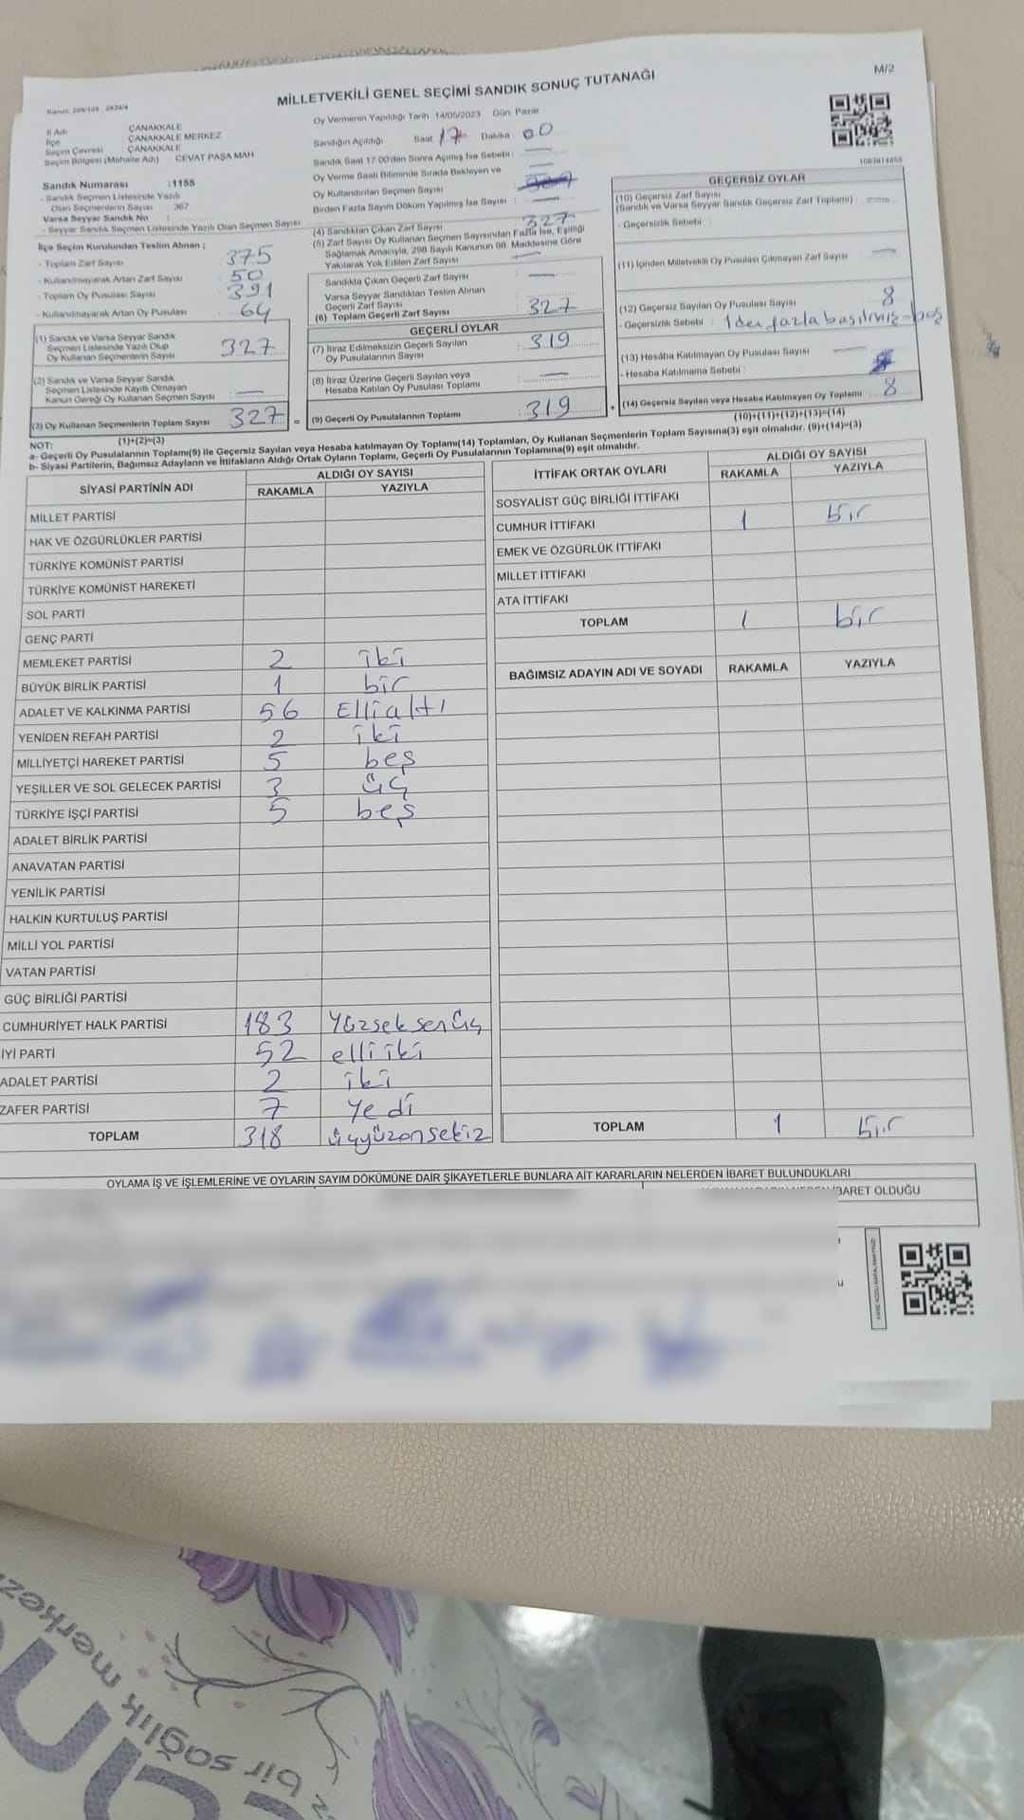 MİLLETVEKİLİ GENEL SEÇİMİ SANDIK SONUÇ TUTANAĞI
M/2
İl Adı : ÇANAKKALE
İlçe : ÇANAKKALE MERKEZ
Seçim Çevresi : ÇANAKKALE
Seçim Bölgesi (Mahalle Adı) : CEVAT PAŞA MAH
Sandık Numarası : 1155
- Sandık Seçmen Listesinde Yazılı
Olan Seçmenlerin Sayısı : 367
Varsa Seyyar Sandık No :
- Seyyar Sandık Seçmen Listesinde Yazılı Olan Seçmen Sayısı
Oy Vermenin Yapıldığı Tarih 14/05/2023 Gün Pazar
Sandığın Açıldığı Saat 17 Dakika 00
Sandık Saat 17.00'den Sonra Açılmış İse Sebebi :
Oy Verme Saati Bitiminde Sırada Bekleyen ve
Oy Kullandırılan Seçmen Sayısı
Birden Fazla Sayım Döküm Yapılmış İse Sayısı :
İlçe Seçim Kurulundan Teslim Alınan ;
- Toplam Zarf Sayısı : 375
- Kullanılmayarak Artan Zarf Sayısı : 50
- Toplam Oy Pusulası Sayısı : 391
- Kullanılmayarak Artan Oy Pusulası : 64
(1) Sandık ve Varsa Seyyar Sandık
Seçmen Listesinde Yazılı Olup
Oy Kullanan Seçmenlerin Sayısı : 327
(2) Sandık ve Varsa Seyyar Sandık
Seçmen Listesinde Kayıtlı Olmayan
Kanun Gereği Oy Kullanan Seçmen Sayısı : —
(3) Oy Kullanan Seçmenlerin Toplam Sayısı 327
(1)+(2)=(3)
(4) Sandıktan Çıkan Zarf Sayısı 327
(5) Zarf Sayısı Oy Kullanan Seçmen Sayısından Fazla İse, Eşitliği
Sağlamak Amacıyla, 298 Sayılı Kanunun 98. Maddesine Göre
Yakılarak Yok Edilen Zarf Sayısı —
Sandıkta Çıkan Geçerli Zarf Sayısı —
Varsa Seyyar Sandıktan Teslim Alınan
Geçerli Zarf Sayısı
(6) Toplam Geçerli Zarf Sayısı : 327
GEÇERLİ OYLAR
(7) İtiraz Edilmeksizin Geçerli Sayılan
Oy Pusulalarının Sayısı : 319
(8) İtiraz Üzerine Geçerli Sayılan veya
Hesaba Katılan Oy Pusulası Toplamı : —
(9) Geçerli Oy Pusulalarının Toplamı 319
GEÇERSİZ OYLAR
(10) Geçersiz Zarf Sayısı
(Sandık ve Varsa Seyyar Sandık Geçersiz Zarf Toplamı) : —
- Geçersizlik Sebebi :
(11) İçinden Milletvekili Oy Pusulası Çıkmayan Zarf Sayısı —
(12) Geçersiz Sayılan Oy Pusulası Sayısı 8
- Geçersizlik Sebebi : 1 den fazla basılmış - boş
(13) Hesaba Katılmayan Oy Pusulası Sayısı —
- Hesaba Katılmama Sebebi :
(14) Geçersiz Sayılan veya Hesaba Katılmayan Oy Toplamı 8
(10)+(11)+(12)+(13)=(14)
NOT:
a- Geçerli Oy Pusulalarının Toplamı(9) ile Geçersiz Sayılan veya Hesaba katılmayan Oy Toplamı(14) Toplamları, Oy Kullanan Seçmenlerin Toplam Sayısına(3) eşit olmalıdır. (9)+(14)=(3)
b- Siyasi Partilerin, Bağımsız Adayların ve İttifakların Aldığı Ortak Oyların Toplamı, Geçerli Oy Pusulalarının Toplamına(9) eşit olmalıdır.
SİYASİ PARTİNİN ADI ALDIĞI OY SAYISI
RAKAMLA YAZIYLA
MİLLET PARTİSİ
HAK VE ÖZGÜRLÜKLER PARTİSİ
TÜRKİYE KOMÜNİST PARTİSİ
TÜRKİYE KOMÜNİST HAREKETİ
SOL PARTİ
GENÇ PARTİ
MEMLEKET PARTİSİ 2 iki
BÜYÜK BİRLİK PARTİSİ 1 bir
ADALET VE KALKINMA PARTİSİ 56 Ellialtı
YENİDEN REFAH PARTİSİ 2 iki
MİLLİYETÇİ HAREKET PARTİSİ 5 beş
YEŞİLLER VE SOL GELECEK PARTİSİ 3 üç
TÜRKİYE İŞÇİ PARTİSİ 5 beş
ADALET BİRLİK PARTİSİ
ANAVATAN PARTİSİ
YENİLİK PARTİSİ
HALKIN KURTULUŞ PARTİSİ
MİLLİ YOL PARTİSİ
VATAN PARTİSİ
GÜÇ BİRLİĞİ PARTİSİ
CUMHURİYET HALK PARTİSİ 183 Yüzseksenüç
İYİ PARTİ 52 elliiki
ADALET PARTİSİ 2 iki
ZAFER PARTİSİ 7 Yedi
TOPLAM 318 üçyüzonsekiz
İTTİFAK ORTAK OYLARI ALDIĞI OY SAYISI
RAKAMLA YAZIYLA
SOSYALİST GÜÇ BİRLİĞİ İTTİFAKI
CUMHUR İTTİFAKI 1 bir
EMEK VE ÖZGÜRLÜK İTTİFAKI
MİLLET İTTİFAKI
ATA İTTİFAKI
TOPLAM 1 bir
BAĞIMSIZ ADAYIN ADI VE SOYADI RAKAMLA YAZIYLA
TOPLAM 1 bir
OYLAMA İŞ VE İŞLEMLERİNE VE OYLARIN SAYIM DÖKÜMÜNE DAİR ŞİKAYETLERLE BUNLARA AİT KARARLARIN NELERDEN İBARET BULUNDUKLARI
İBARET OLDUĞU
bir sağlık merkezi